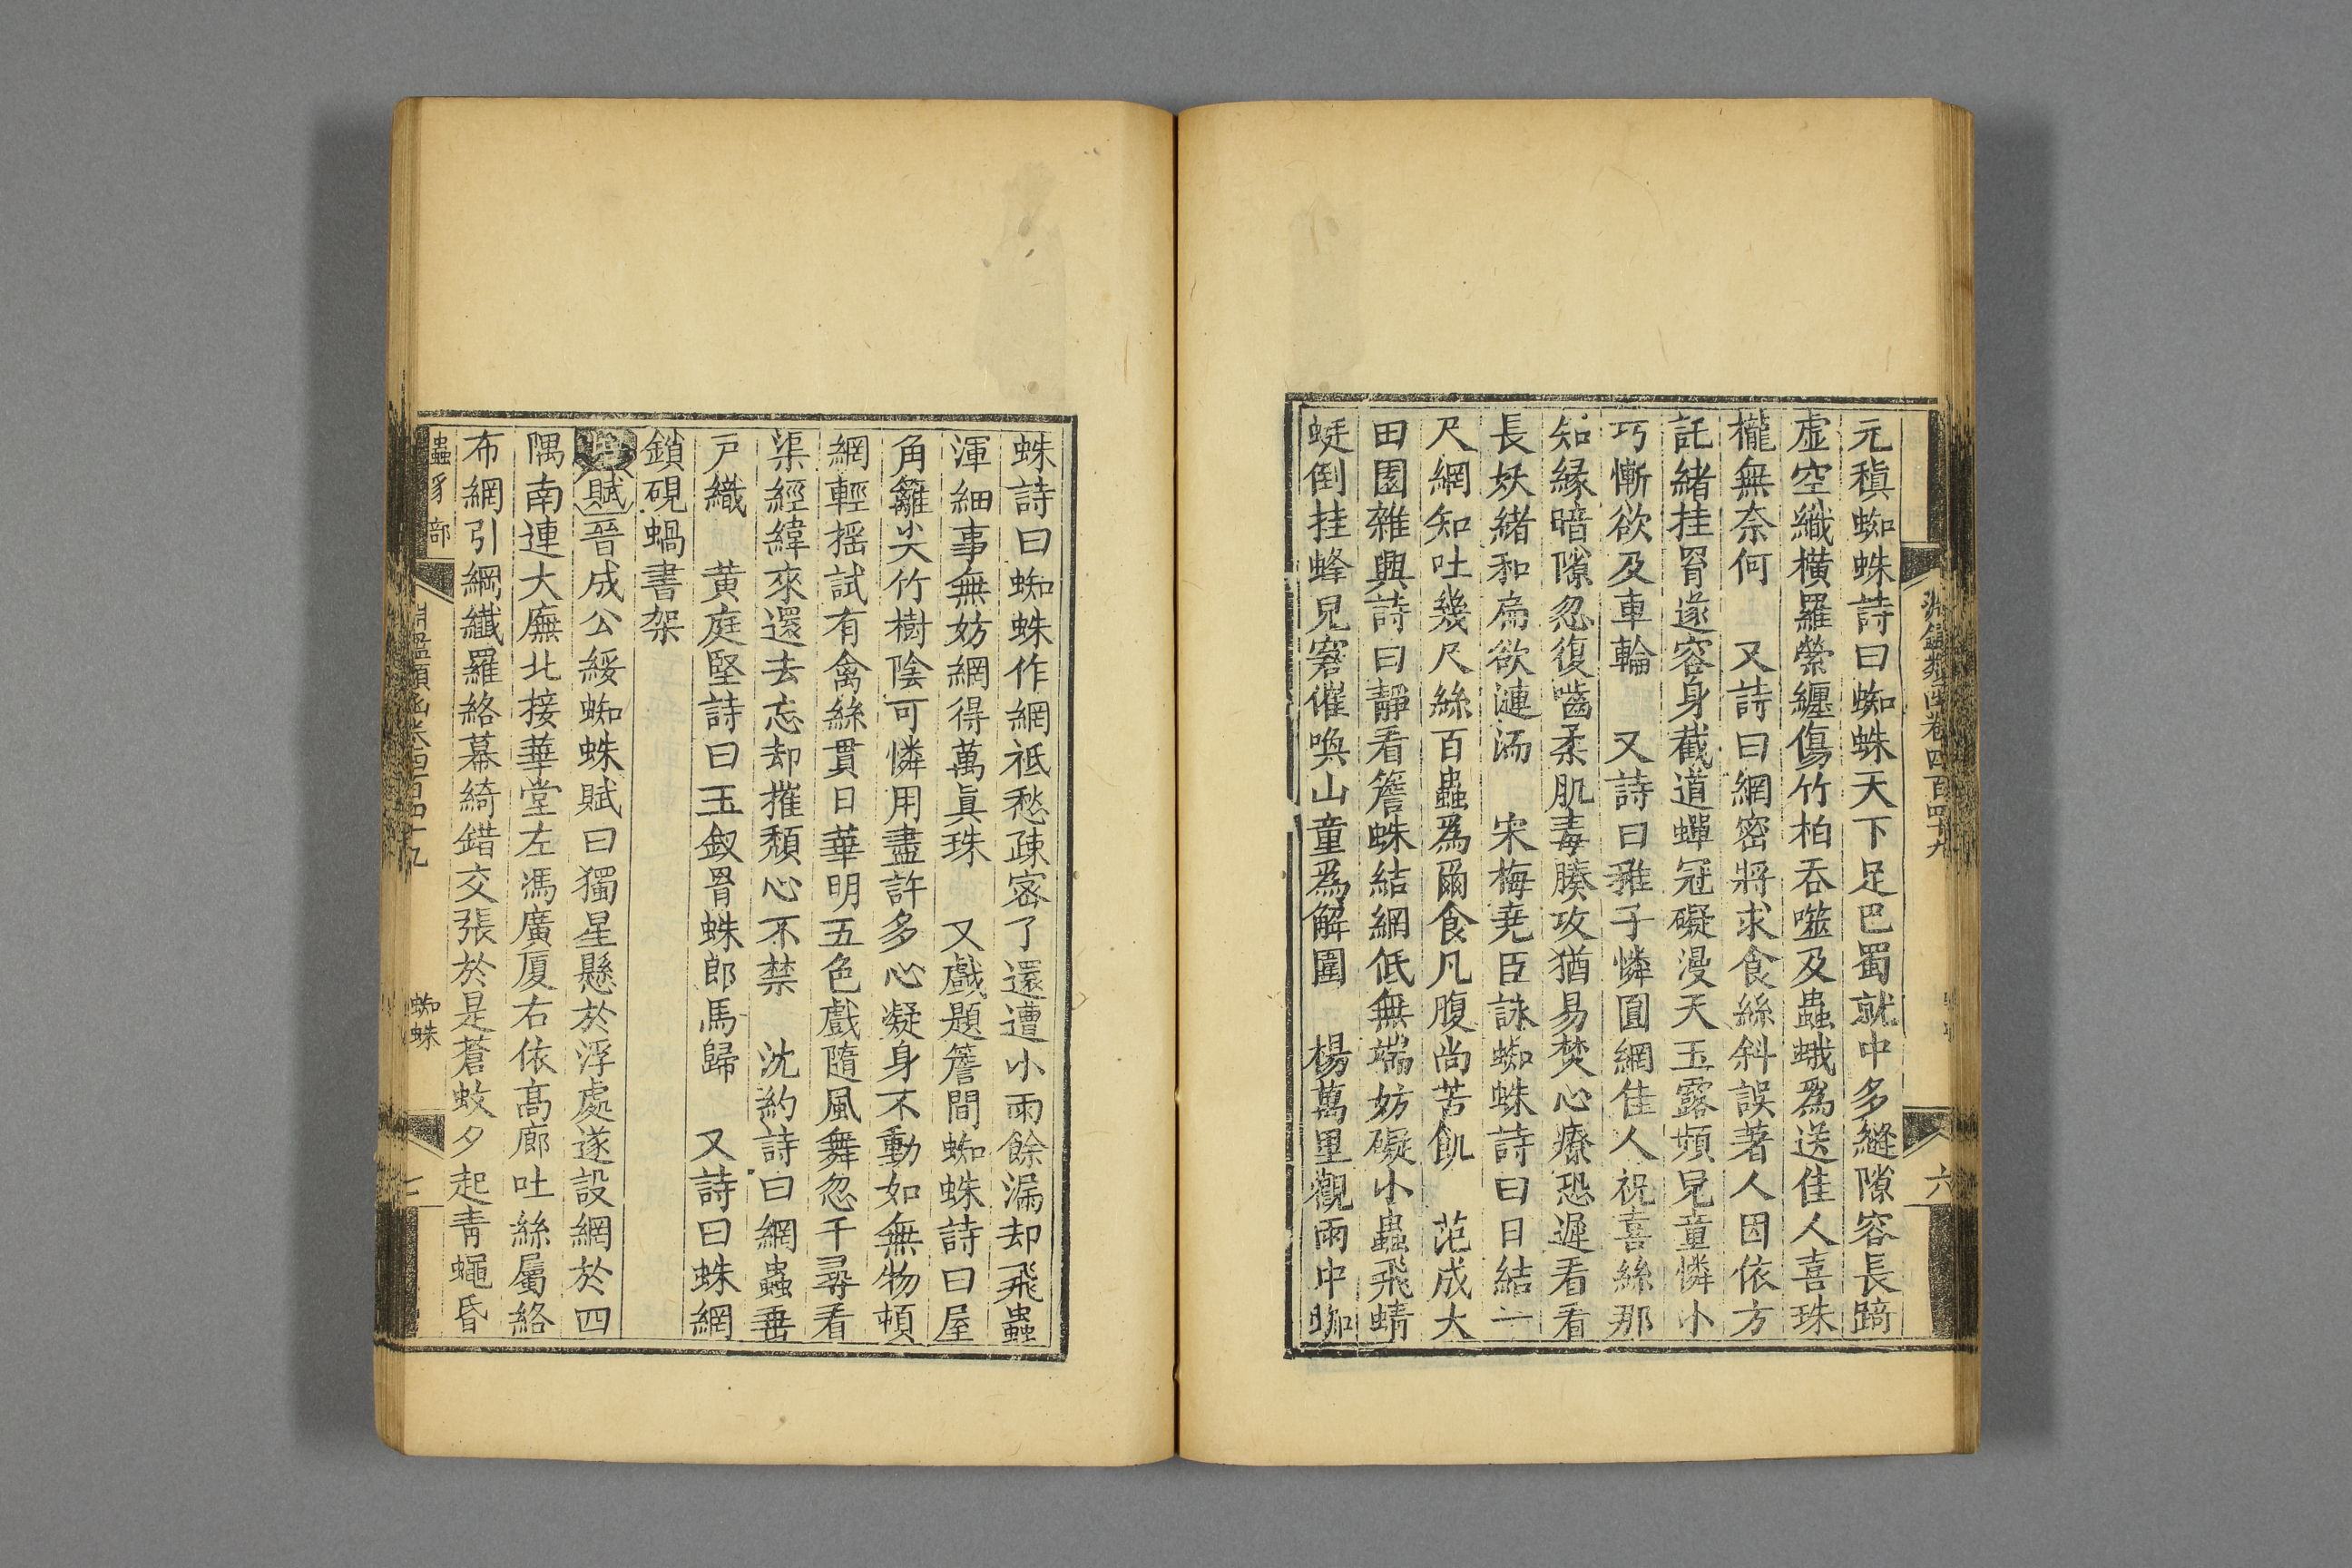 元稹蜘蛛詩曰蜘蛛天下足巴蜀就中多縫隙容長踦
虛空織橫羅縈纏傷竹柏吞噬及蟲蛾爲送佳人喜珠
櫳無奈何 又詩曰網密將求食絲斜誤著人因依方
託緒挂罥遂容身截道蟬冠礙漫天玉露頻兒童憐小
巧慚欲及車輪 又詩曰稚子憐圓網佳人祝喜絲那
知緣暗隙忽復嚙柔肌毒腠攻猶易焚心療恐遲看看
長妖緒和扁欲漣洏 宋梅堯臣詠蜘蛛詩曰日結一
尺網知吐幾尺絲百蟲爲爾食凡腹尚苦飢 范成大
田園雜興詩曰靜看簷蛛結網低無端妨礙小蟲飛蜻
蜓倒挂蜂兒窘催喚山童爲解圍 楊萬里觀雨中蜘
淵鑑類函卷四百四十九
六
蛛詩曰蜘蛛作網祗愁疎密了還遭小雨餘漏却飛蟲
渾細事無妨網得萬眞珠 又戲題簷間蜘蛛詩曰屋
角籬尖竹樹陰可憐用盡許多心凝身不動如無物頓
網輕搖試有禽絲貫日華明五色戲隨風舞忽千尋看
渠經緯來還去忘却摧頹心不禁 沈約詩曰網蟲垂
戸織 黄庭堅詩曰玉釵罥蛛郎馬歸 又詩曰蛛網
鎖硯蝸書架
賦晉成公綏蜘蛛賦曰獨星懸於浮處遂設網於四
隅南連大廡北接華堂左馮廣厦右依高廊吐絲屬絡
布網引綱纖羅絡幕綺錯交張於是蒼蚊夕起青蠅昏
蟲豸部
淵鑑類函卷四百四十九
蜘蛛